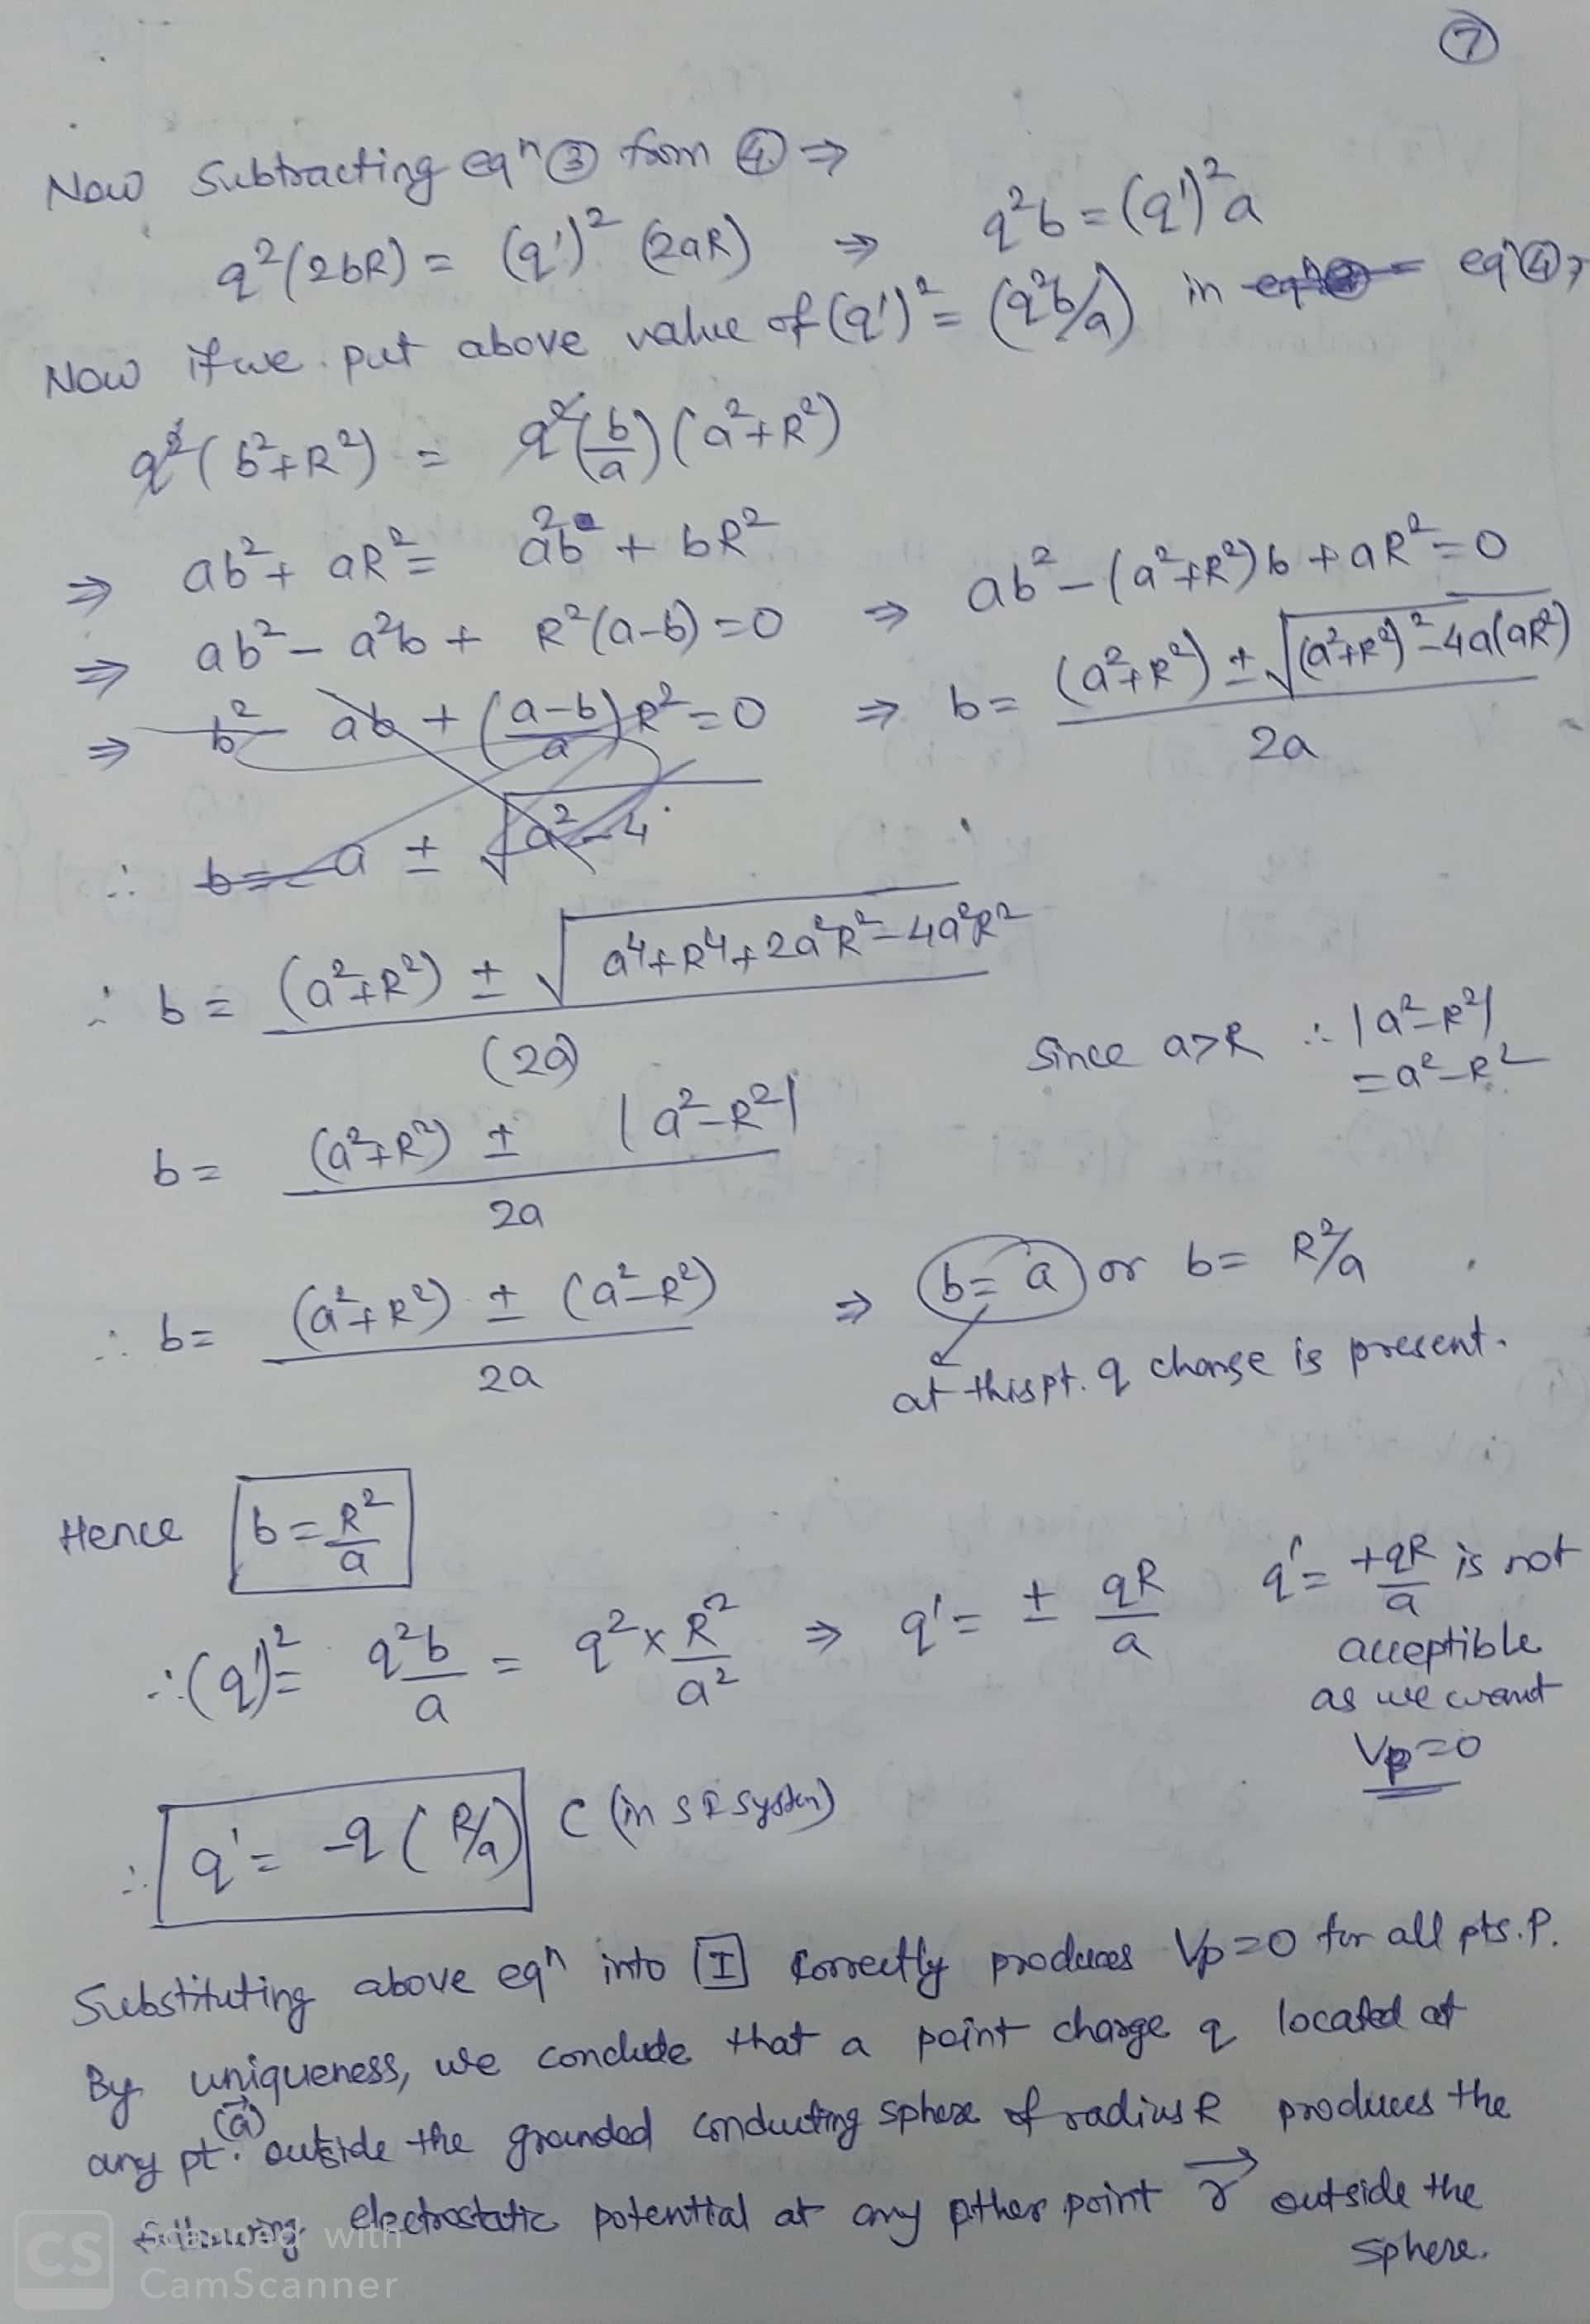 ⑦
Now Subtracting eqⁿ ③ from ④ ⇒
q²(2bR) = (q')² (2aR) ⇒ q²b = (q')²a
Now if we put above value of (q')² = (q²b/a) in eqⁿ④,
q²(b²+R²) = q²(b/a)(a²+R²)
⇒ ab² + aR² = a²b + bR²
⇒ ab² - a²b + R²(a-b) = 0 ⇒ ab² - (a²+R²)b + aR² = 0
⇒ b² - ab + ((a-b)/a)R² = 0 ⇒ b = ((a²+R²) ± √((a²+R²)² - 4a(aR²)))/2a
∴ b = a ± √(a²-4
∴ b = ((a²+R²) ± √(a⁴+R⁴+2a²R²-4a²R²))/(2a)
Since a>R ∴ |a²-R²|
= a²-R²
b = ((a²+R²) ± |a²-R²|)/2a
∴ b = ((a²+R²) ± (a²-R²))/2a ⇒ b = a or b = R²/a
at this pt. q charge is present.
Hence b = R²/a
∴ (q')² = q²b/a = q² x R²/a² ⇒ q' = ± qR/a
q' = +qR/a is not
acceptible
as we want
Vp=0
∴ q' = -q (R/a) C (in SI system)
Substituting above eqⁿ into [I] correctly produces Vp=0 for all pts. P.
By uniqueness, we conclude that a point charge q located at
any pt. (a⃗) outside the grounded conducting sphere of radius R produces the
following electrostatic potential at any other point r⃗ outside the
sphere.
CS Scanned with
CamScanner